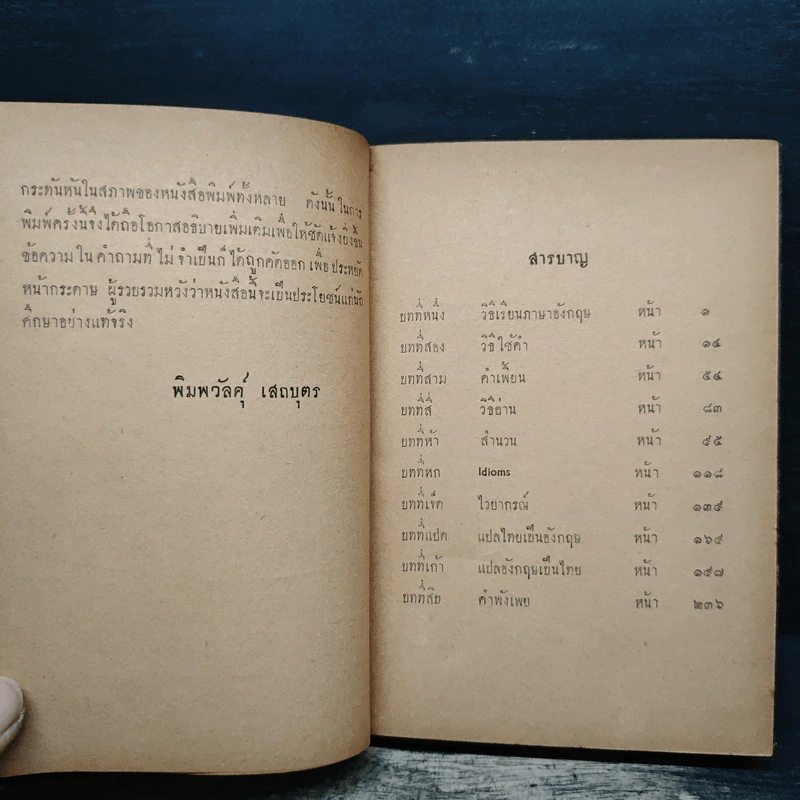 กระทันหันในสภาพของหนังสือพิมพ์ทั้งหลาย ดังนั้น ในการ
พิมพ์ครั้งนี้จึงได้ถือโอกาสอธิบายเพิ่มเติมเพื่อให้ชัดแจ้งยิ่งขึ้น
ข้อความ ใน คำถามที่ ไม่ จำเป็นก็ ได้ถูกคัดออก เพื่อ ประหยัด
หน้ากระดาษ ผู้รวบรวมหวังว่าหนังสือนี้จะเป็นประโยชน์แก่นัก
ศึกษาอย่างแท้จริง
พิมพวัลคุ์ เสถบุตร
สารบาญ
บทที่หนึ่ง วิธีเรียนภาษาอังกฤษ หน้า ๑
บทที่สอง วิธีใช้คำ หน้า ๑๔
บทที่สาม คำเพี้ยน หน้า ๕๔
บทที่สี่ วิธีอ่าน หน้า ๘๓
บทที่ห้า สำนวน หน้า ๙๕
บทที่หก Idioms หน้า ๑๑๘
บทที่เจ็ด ไวยากรณ์ หน้า ๑๓๙
บทที่แปด แปลไทยเป็นอังกฤษ หน้า ๑๖๙
บทที่เก้า แปลอังกฤษเป็นไทย หน้า ๑๙๗
บทที่สิบ คำพังเพย หน้า ๒๓๖